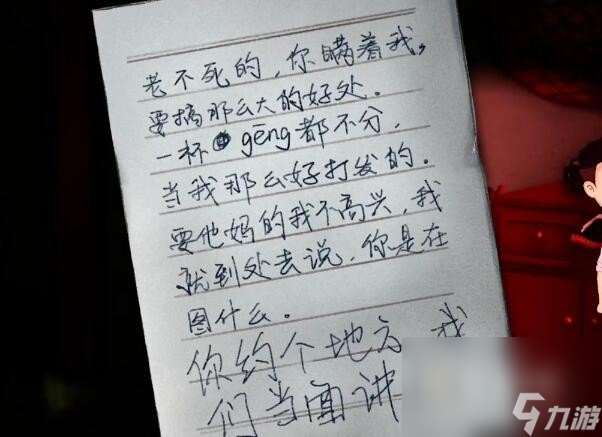 老不死的，你瞒着我，
要搞那么大的好处。
一杯gēng都不分，
当我那么好打发的。
要他妈的我不高兴，我
就到处去说，你是在
图什么。
你约个地方 我
们当面讲
九游